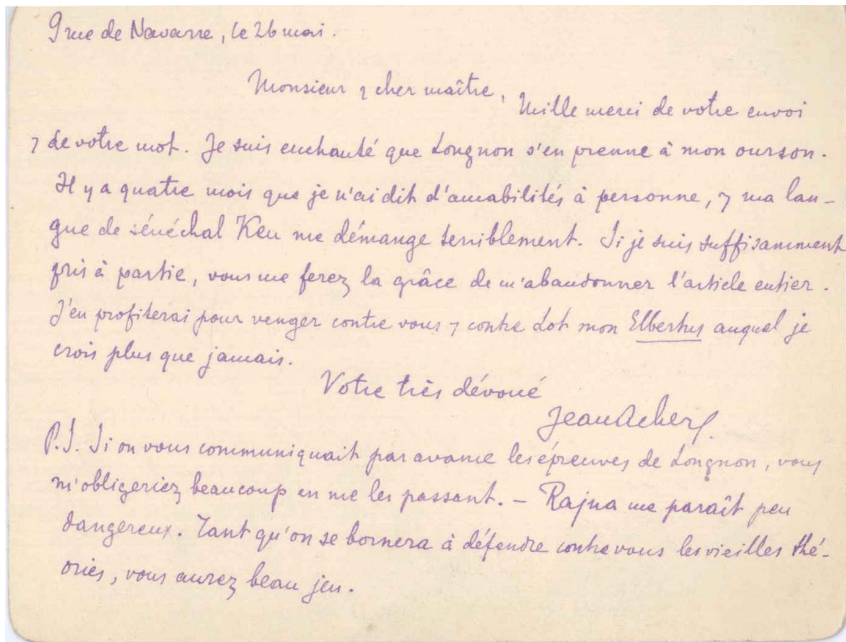 9 rue de Navarre, le 26 mai.
Monsieur ⁊ cher maître,
Mille merci de votre envoi
⁊ de votre mot. Je suis enchanté que Longnon s'en prenne à mon ourson.
Il y a quatre mois que je n'ai dit d'amabilités à personne, ⁊ ma lan-
gue de sénéchal Keu me démange terriblement. Si je suis suffisamment
pris à partie, vous me ferez la grâce de m'abandonner l'article entier.
J'en profiterai pour venger contre vous ⁊ contre Lot mon Elbertus auquel je
crois plus que jamais.
Votre très dévoué
Jean Acher.
P.S. Si on vous communiquait par avance les épreuves de Longnon, vous
m'obligeriez beaucoup en me les passant. – Rajna me paraît peu
dangereux. Tant qu'on se bornera à défendre contre vous les vieilles thé-
ories, vous aurez beau jeu.